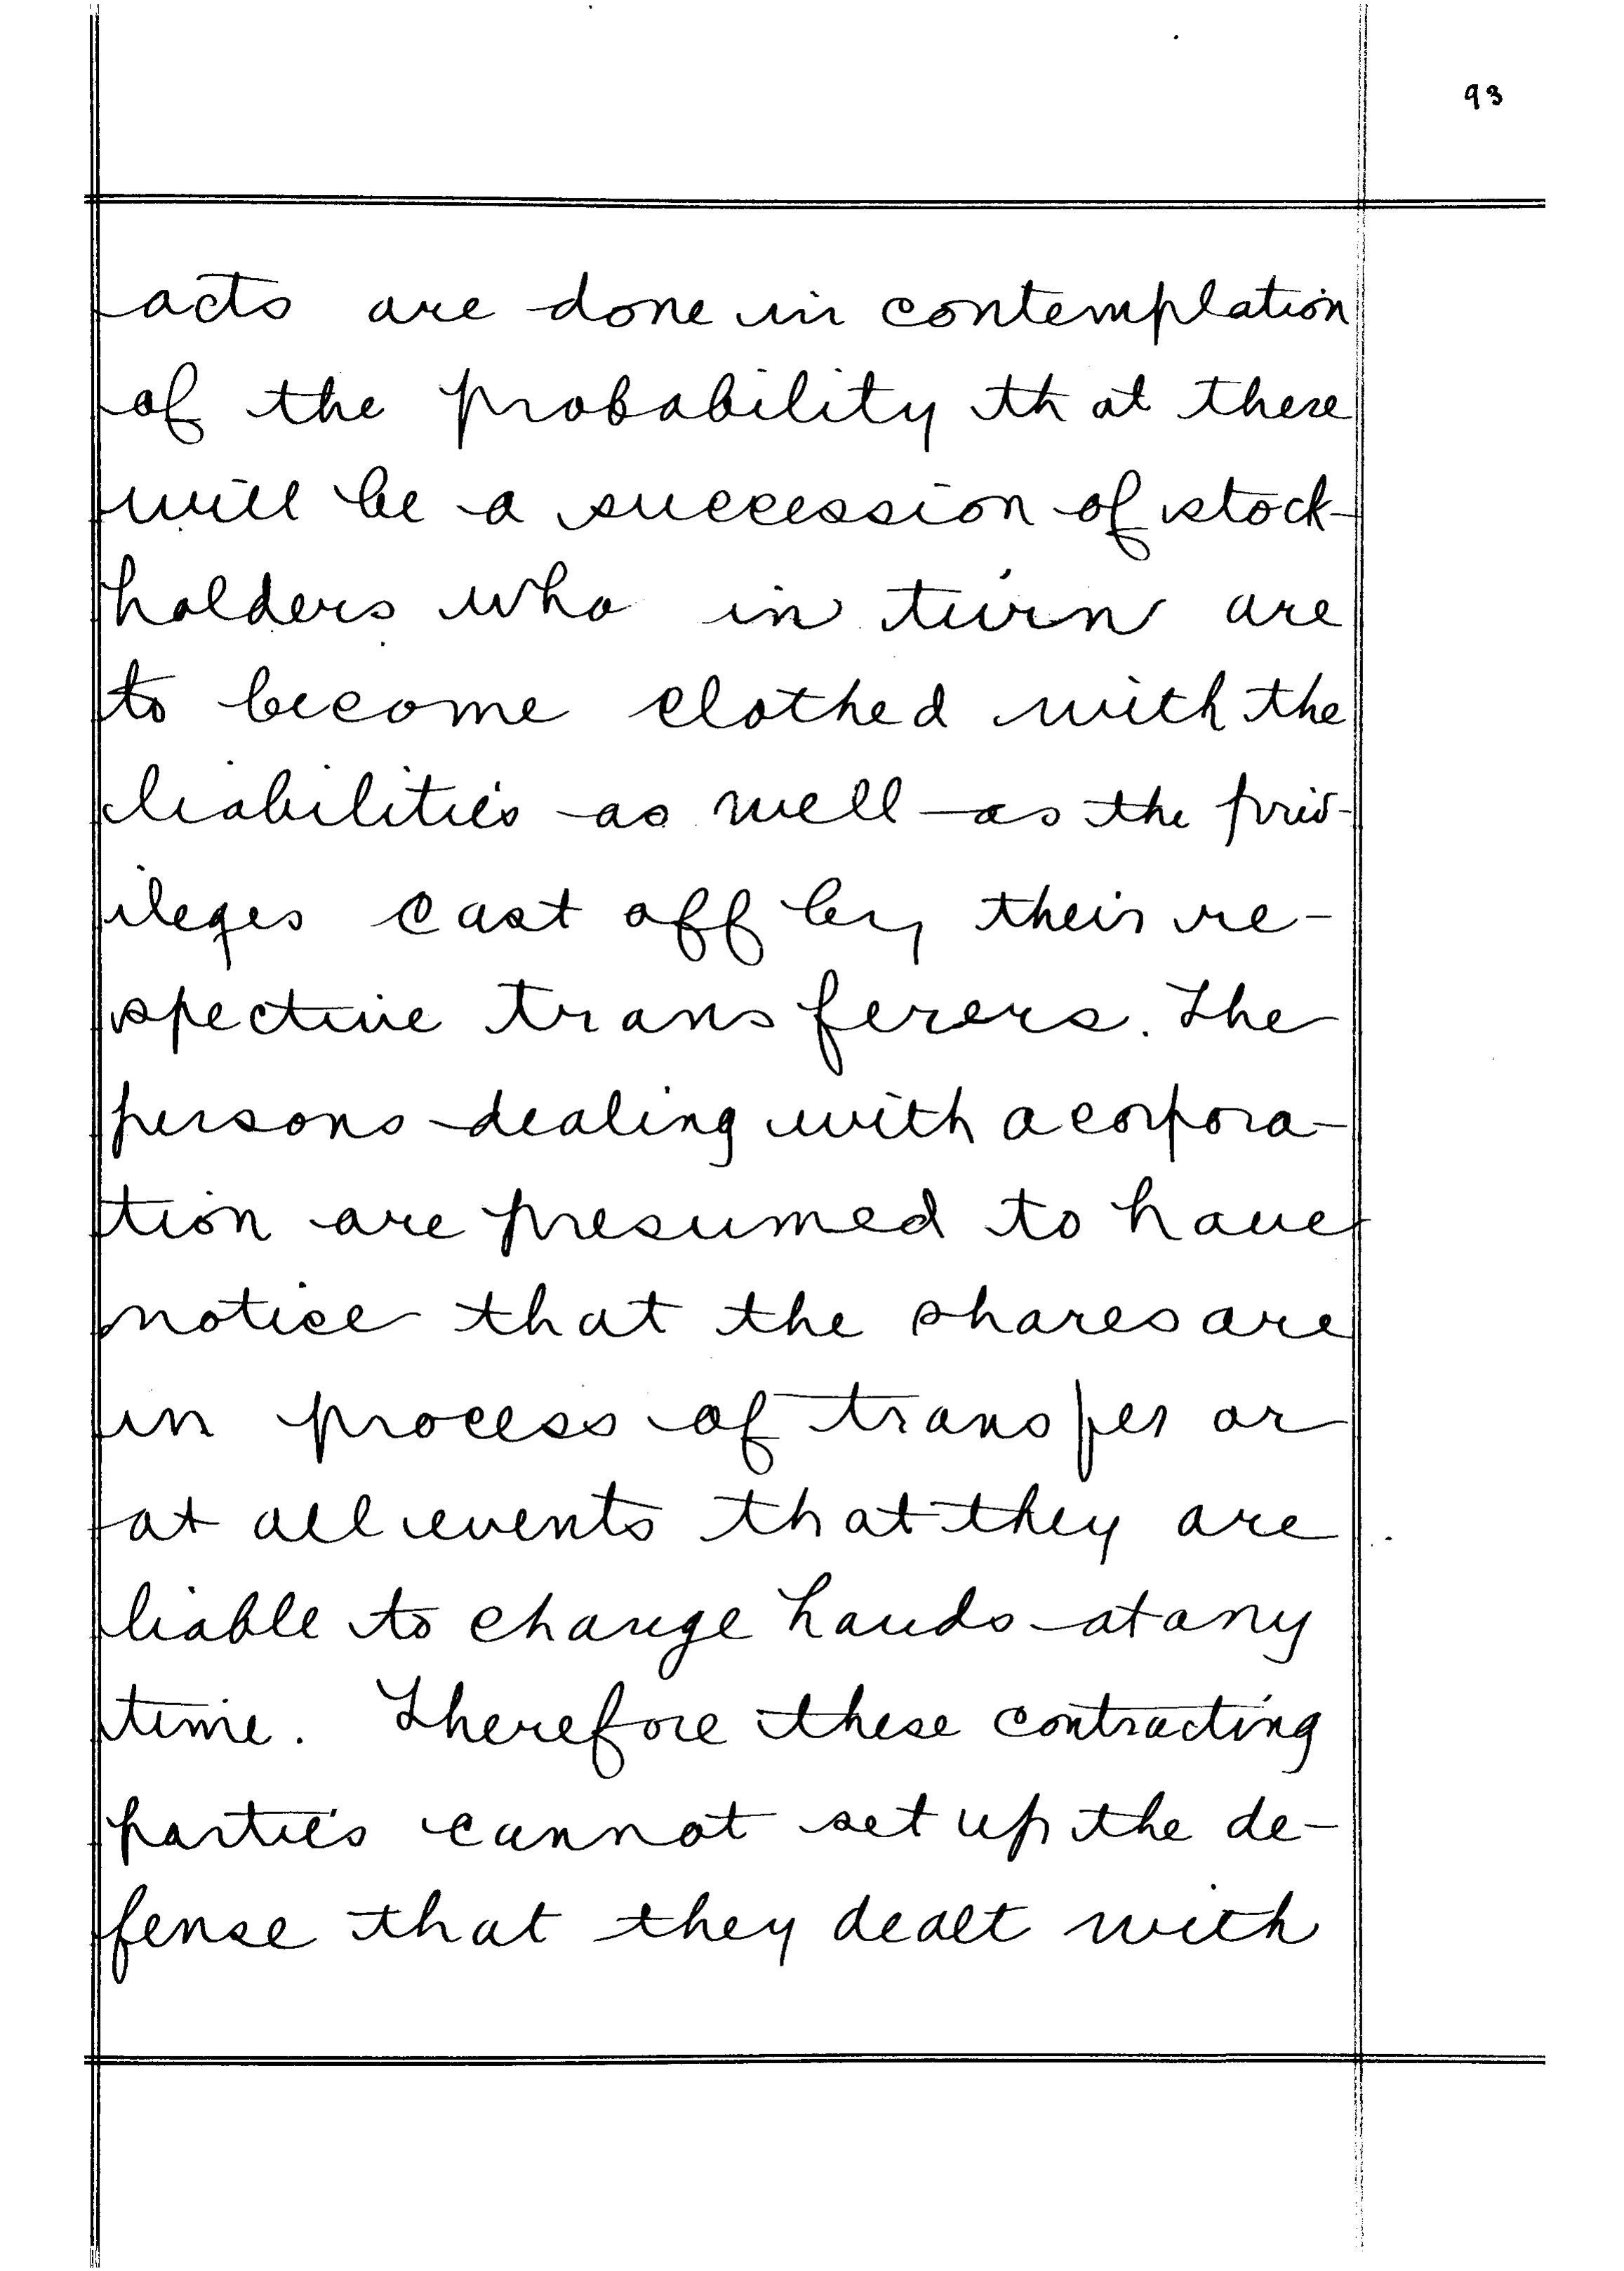 93
acts are done in contemplation
of the probability that there
will be a succession of stock-
holders who in turn are
to become clothed with the
liabilities as well as the priv-
ileges cast off by their re-
spective transferers. The
persons dealing with a corpora-
tion are presumed to have
notice that the shares are
in process of transfer or
at all events that they are
liable to change hands at any
time. Therefore these contracting
parties cannot set up the de-
fense that they dealt with